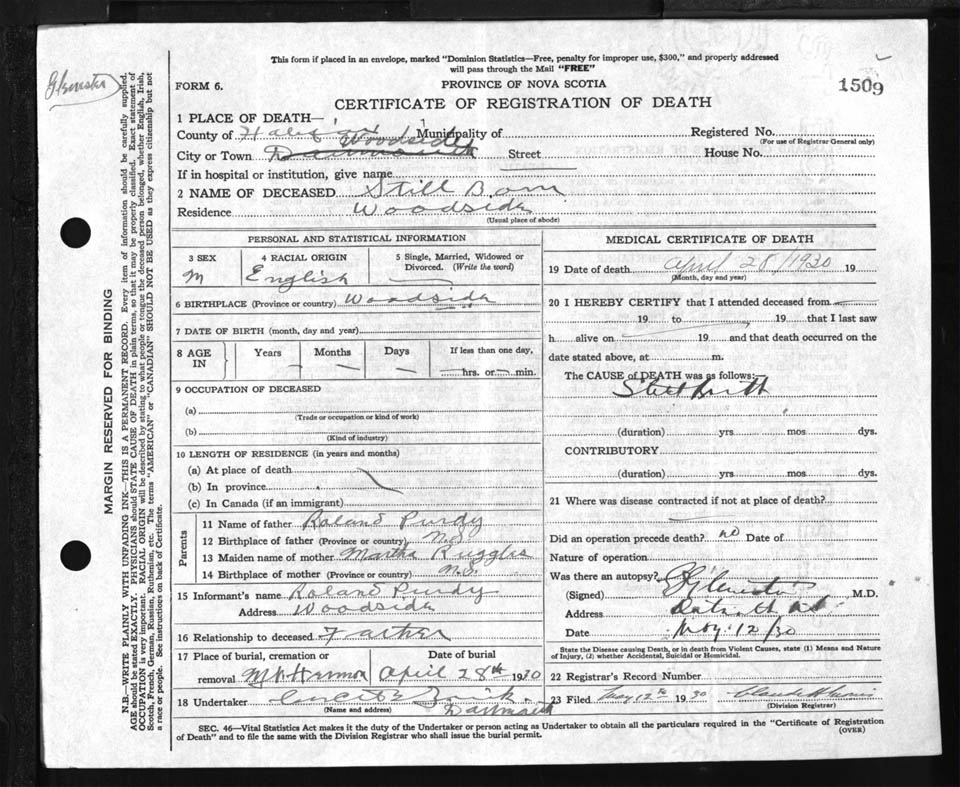 This form if placed in an envelope, marked "Dominion Statistics—Free, penalty for improper use, $300," and properly addressed
will pass through the Mail "FREE"
FORM 6.
PROVINCE OF NOVA SCOTIA
1509
CERTIFICATE OF REGISTRATION OF DEATH
1 PLACE OF DEATH—
County of Halifax Municipality of
Registered No.
(For use of Registrar General only)
City or Town Woodside Dartmouth Street House No.
If in hospital or institution, give name
2 NAME OF DECEASED Still Born
Residence Woodside
(Usual place of abode)
MARGIN RESERVED FOR BINDING
N.B.—WRITE PLAINLY WITH UNFADING INK—THIS IS A PERMANENT RECORD. Every item of information should be carefully supplied.
AGE should be stated EXACTLY. PHYSICIANS should STATE CAUSE OF DEATH in plain terms, so that it may be properly classified. Exact statement of
OCCUPATION is very important. RACIAL ORIGIN will be described by stating to what people or tongue the deceased person belonged, whether English, Irish,
Scotch, French, German, Russian, Ruthenian, etc. The terms "AMERICAN" or "CANADIAN" SHOULD NOT BE USED as they express citizenship but not
a race or people. See instructions on back of Certificate.
PERSONAL AND STATISTICAL INFORMATION
3 SEX
M
4 RACIAL ORIGIN
English
5 Single, Married, Widowed or
Divorced. (Write the word)
6 BIRTHPLACE (Province or country) Woodside
7 DATE OF BIRTH (month, day and year)
8 AGE
IN
Years
Months
Days
If less than one day,
hrs. or min.
9 OCCUPATION OF DECEASED
(a)
(Trade or occupation or kind of work)
(b)
(Kind of industry)
10 LENGTH OF RESIDENCE (in years and months)
(a) At place of death
(b) In province
(c) In Canada (if an immigrant)
Parents
11 Name of father Roland Purdy
12 Birthplace of father (Province or country) N.S.
13 Maiden name of mother Martha Ruggles
14 Birthplace of mother (Province or country) N.S.
15 Informant's name Roland Purdy
Address Woodside
16 Relationship to deceased Farther
17 Place of burial, cremation or
removal Mt Hermon
Date of burial
April 28th 1930
18 Undertaker Dartmouth
(Name and address)
MEDICAL CERTIFICATE OF DEATH
19 Date of death April 28/1930 19
(Month, day and year)
20 I HEREBY CERTIFY that I attended deceased from
19 to 19 that I last saw
h alive on 19 and that death occurred on the
date stated above, at m.
The CAUSE of DEATH was as follows:—
Still birth
(duration) yrs mos dys.
CONTRIBUTORY
(duration) yrs mos dys.
21 Where was disease contracted if not at place of death?
Did an operation precede death? no Date of
Nature of operation
Was there an autopsy?
(Signed) M.D.
Address
Date May 12/30
State the Disease causing Death, or in death from Violent Causes, state (1) Means and Nature
of Injury, (2) whether Accidental, Suicidal or Homicidal.
22 Registrar's Record Number
23 Filed May 12th 1930
(Division Registrar)
SEC. 46—Vital Statistics Act makes it the duty of the Undertaker or person acting as Undertaker to obtain all the particulars required in the "Certificate of Registration
of Death" and to file the same with the Division Registrar who shall issue the burial permit.
(OVER)